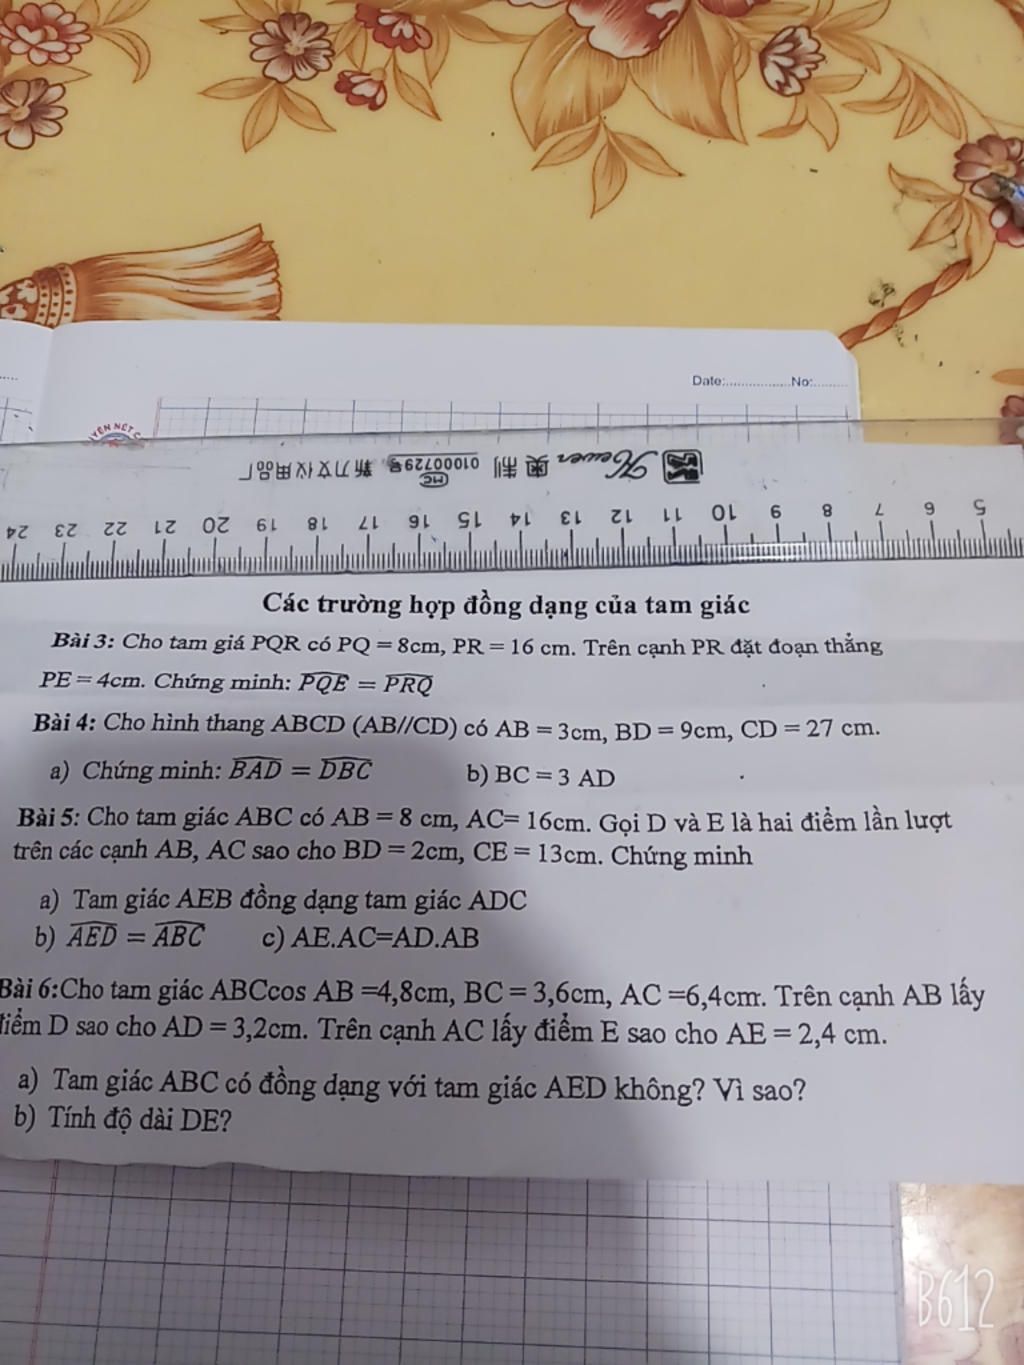 Date:.................No:........
YÊN NÉT C
Hewen 奥制 MC 01000729号 新力文仪用品厂
24 23 22 21 20 19 18 17 16 15 14 13 12 11 10 9 8 7 6 5
Các trường hợp đồng dạng của tam giác
Bài 3: Cho tam giá PQR có PQ = 8cm, PR = 16 cm. Trên cạnh PR đặt đoạn thẳng
PE = 4cm. Chứng minh: PQE = PRQ
Bài 4: Cho hình thang ABCD (AB//CD) có AB = 3cm, BD = 9cm, CD = 27 cm.
a) Chứng minh: BAD = DBC b) BC = 3 AD
Bài 5: Cho tam giác ABC có AB = 8 cm, AC= 16cm. Gọi D và E là hai điểm lần lượt
trên các cạnh AB, AC sao cho BD = 2cm, CE = 13cm. Chứng minh
a) Tam giác AEB đồng dạng tam giác ADC
b) AED = ABC c) AE.AC=AD.AB
Bài 6:Cho tam giác ABCcos AB =4,8cm, BC = 3,6cm, AC =6,4cm. Trên cạnh AB lấy
điểm D sao cho AD = 3,2cm. Trên cạnh AC lấy điểm E sao cho AE = 2,4 cm.
a) Tam giác ABC có đồng dạng với tam giác AED không? Vì sao?
b) Tính độ dài DE?
B612